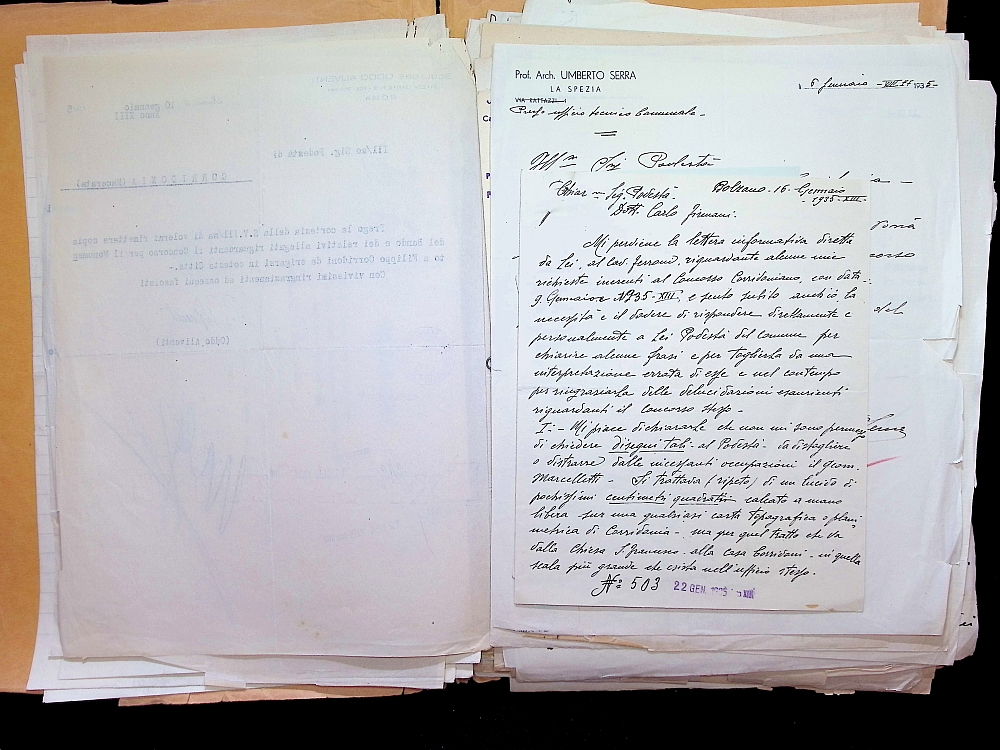 10 gennaio
Anno XIII
Ill/mo Sig. Podestà di
CORRIDONIA (Macerata)
Prego la cortesia della S.V.Ill/ma di volermi rimettere copia
del Bando e dei relativi allegati riguardanti il Concorso per il Monumen
to a Filippo Corridoni da erigersi in codesta Città.
Con vivissimi ringraziamenti ed ossequi fascisti
(Oddo Aliventi)
Prof. Arch. UMBERTO SERRA
LA SPEZIA
VIA RATTAZZI
Presso ufficio tecnico Comunale
Gennaio 1935
Ill.mo Sig. Podestà
Chiar.mo Sig. Podestà
Dott. Carlo Firmani.
Bolzano. 16. Gennaio
1935-XIII.
Mi perviene la lettera informativa diretta
da Lei al Cav. Ferroni, riguardante alcune mie
richieste inerenti al Concorso Corridoniano, con data
9. Gennaio 1935-XIII, e sento subito anch'io la
necessità e il dovere di rispondere direttamente e
personalmente a Lei Podestà del Comune per
chiarire alcune frasi e per toglierla da una
interpretazione errata di esse e nel contempo
per ringraziarla delle delucidazioni esaurienti
riguardanti il concorso stesso -
I: - Mi piace dichiararle che non mi sono permesso
di chiedere disegni tali - al Podestà - da distogliere
o distrarre dalle incessanti occupazioni il geom.
Marcelletti - Si trattava (ripeto) di un lucido di
pochissimi centimetri quadrati calcato a mano
libera sur una qualsiasi carta topografica o plani
metrica di Corridonia - ma per quel tratto che va
dalla Chiesa S. Francesco alla casa Corridoni - in quella
scala più grande che esista nell'ufficio stesso.
No 503
22 GEN. 1935 XIII